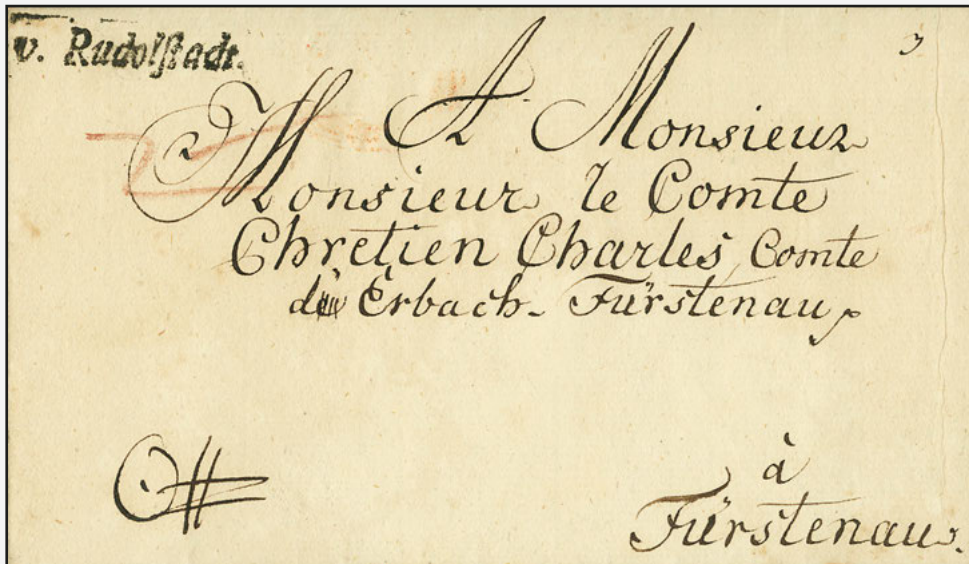 v. Rudolstadt.
A Monsieur
Monsieur le Comte
Chretien Charles, Comte
Erbach-Fürstenau
à
Fürstenau.